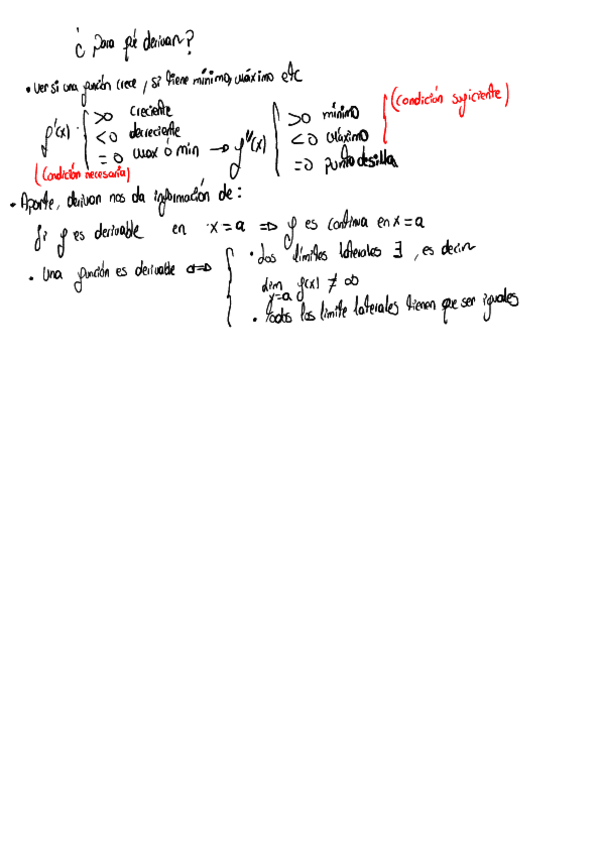 ¿Para qué derivar?
• Ver si una función crece, si tiene mínimo, máximo etc
f'(x) { >0 creciente
<0 decreciente
=0 max ó min → f''(x) { >0 mínimo
<0 máximo
=0 punto de silla
(Condición suficiente)
(Condición necesaria)
• Aparte, derivar nos da información de:
Si f es derivable en x=a ⇒ f es continua en x=a
• Una función es derivable ⇔ { • Los límites laterales ∃, es decir
lim f(x) ≠ ∞
x=a
• Todos los límite laterales tienen que ser iguales